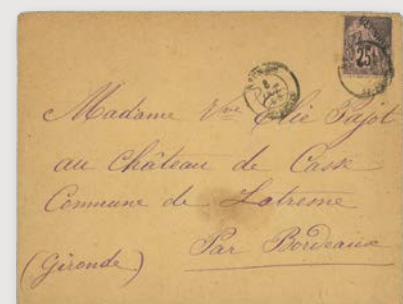 Madame Vve Elie Pajot
au Château de Cask
Commune de Latresne
Par Bordeaux
(Gironde)
25